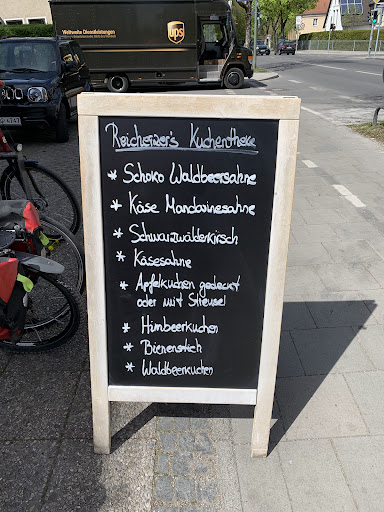 Weltweite Dienstleistungen
ups
Reicheizer's Kuchentheke
* Schoko Waldbeersahne
* Käse Mandarinesahne
* Schwarzwälderkirsch
* Käsesahne
* Apfelkuchen gedeckt
oder mit Streusel
* Himbeerkuchen
* Bienenstich
* Waldbeerkuchen